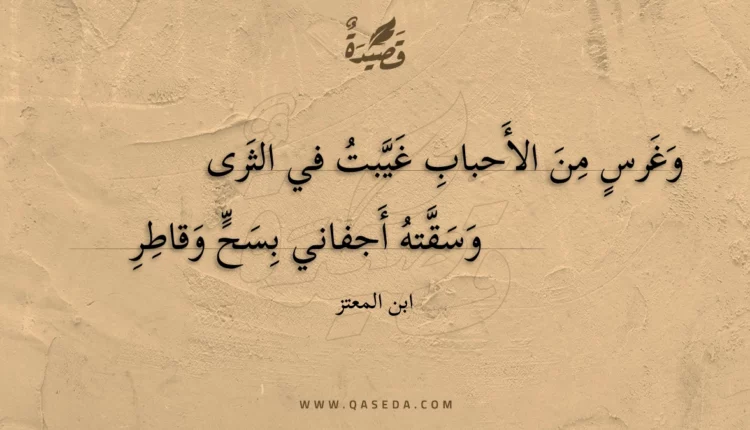 قَصِيدَةٌ
وَغَرسٍ مِنَ الأَحبابِ غَيَّبتُ في الثَرى
وَسَقَّتهُ أَجفاني بِسَحٍّ وَقاطِرِ
ابن المعتز
WWW.QASEDA.COM